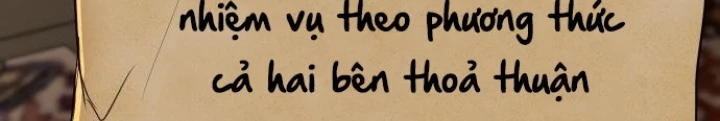 nhiệm vụ theo phương thức
cả hai bên thoả thuận